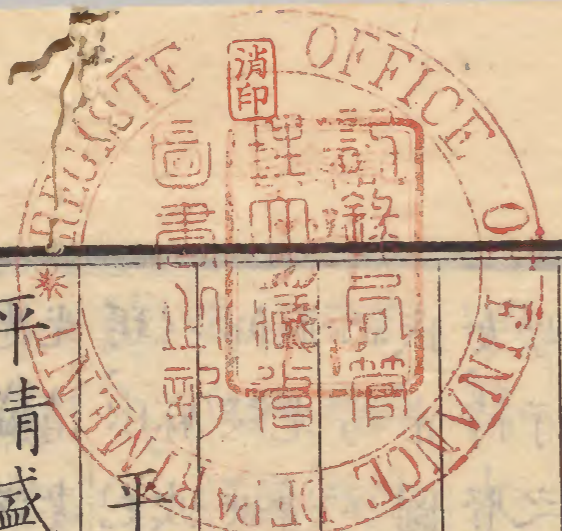 REGISTE OFFICE O FINANCE DEPARTMENT
消印
記錄局管
理大藏省
圖書之印
平
平清盛